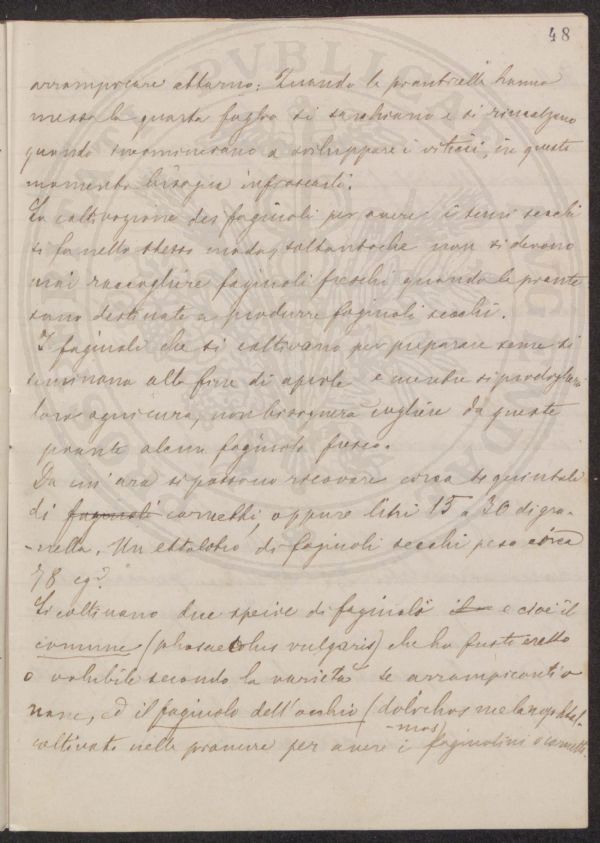 48
arrampicare attorno: Quando le pianticelle hanno
messo la quarta foglia si sarchiano e si rincalzano
quando incominciano a sviluppare i viticci, in questo
momento bisogna infrascarli.
La coltivazione dei faginoli per avere i semi secchi
si fa nello stesso modo, soltantoche non si devono
mai raccogliere faginoli freschi quando le piante
sono destinate a produrre faginoli secchi.
I faginoli che si coltivano per preparare seme si
seminano alla fine di aprile e mentre si prodigherà
loro ogni cura, non bisognerà cogliere da queste
piante alcun faginolo fresco.
Da un'ara si possono ricavare circa quintali
di faginoli cornetti, oppure litri 15 a 30 di gra-
-nella. Un ettolitro di faginoli secchi pesa circa
78 cg.
Si coltivano due specie di faginoli il e cioè il
comune (phosaeolus vulgaris) che ha fusto eretto
o volubile secondo la varietà se arrampicanti o
nane, ed il faginolo dell'occhio (dolichos melanophtal-
-mos)
coltivato nelle pianure per avere i faginolini o cornetti.